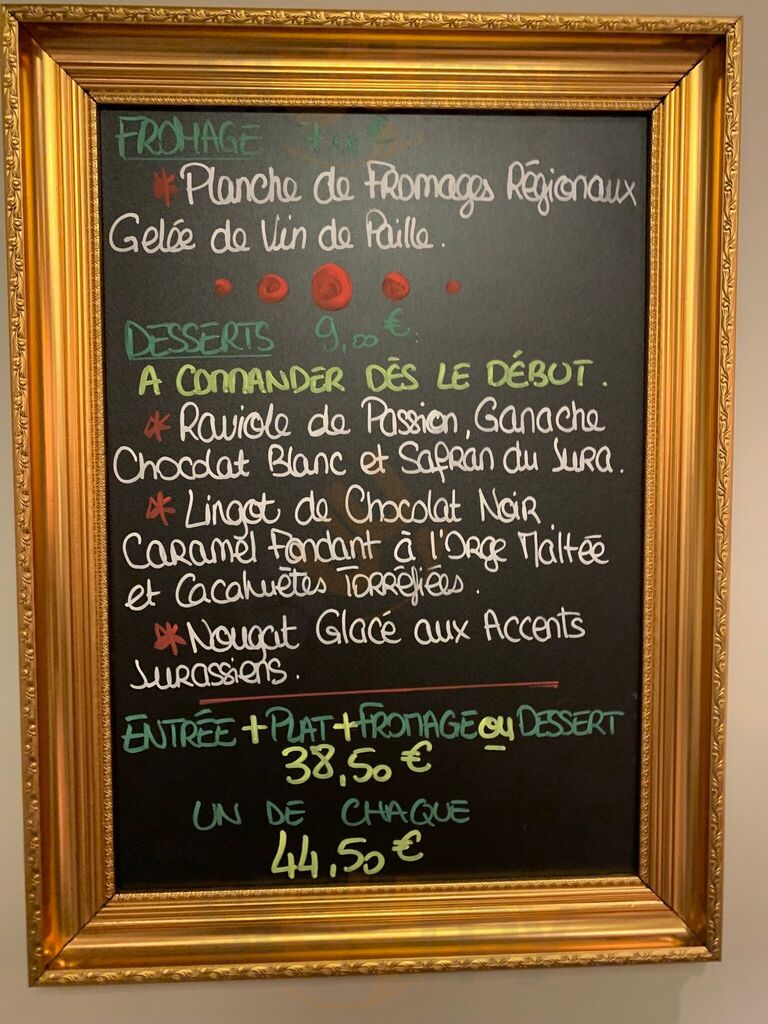 FROMAGE 7,00 €
* Planche de Fromages Régionaux
Gelée de Vin de Paille.
DESSERTS 9,00 €.
A COMMANDER DÈS LE DÉBUT.
* Raviole de Passion, Ganache
Chocolat Blanc et Safran du Jura.
* Lingot de Chocolat Noir,
Caramel Fondant à l'Orge Maltée
et Cacahuètes Torréfiées.
* Nougat Glacé aux Accents
Jurassiens.
ENTRÉE + PLAT + FROMAGE ou DESSERT
38,50 €
UN DE CHAQUE
44,50 €